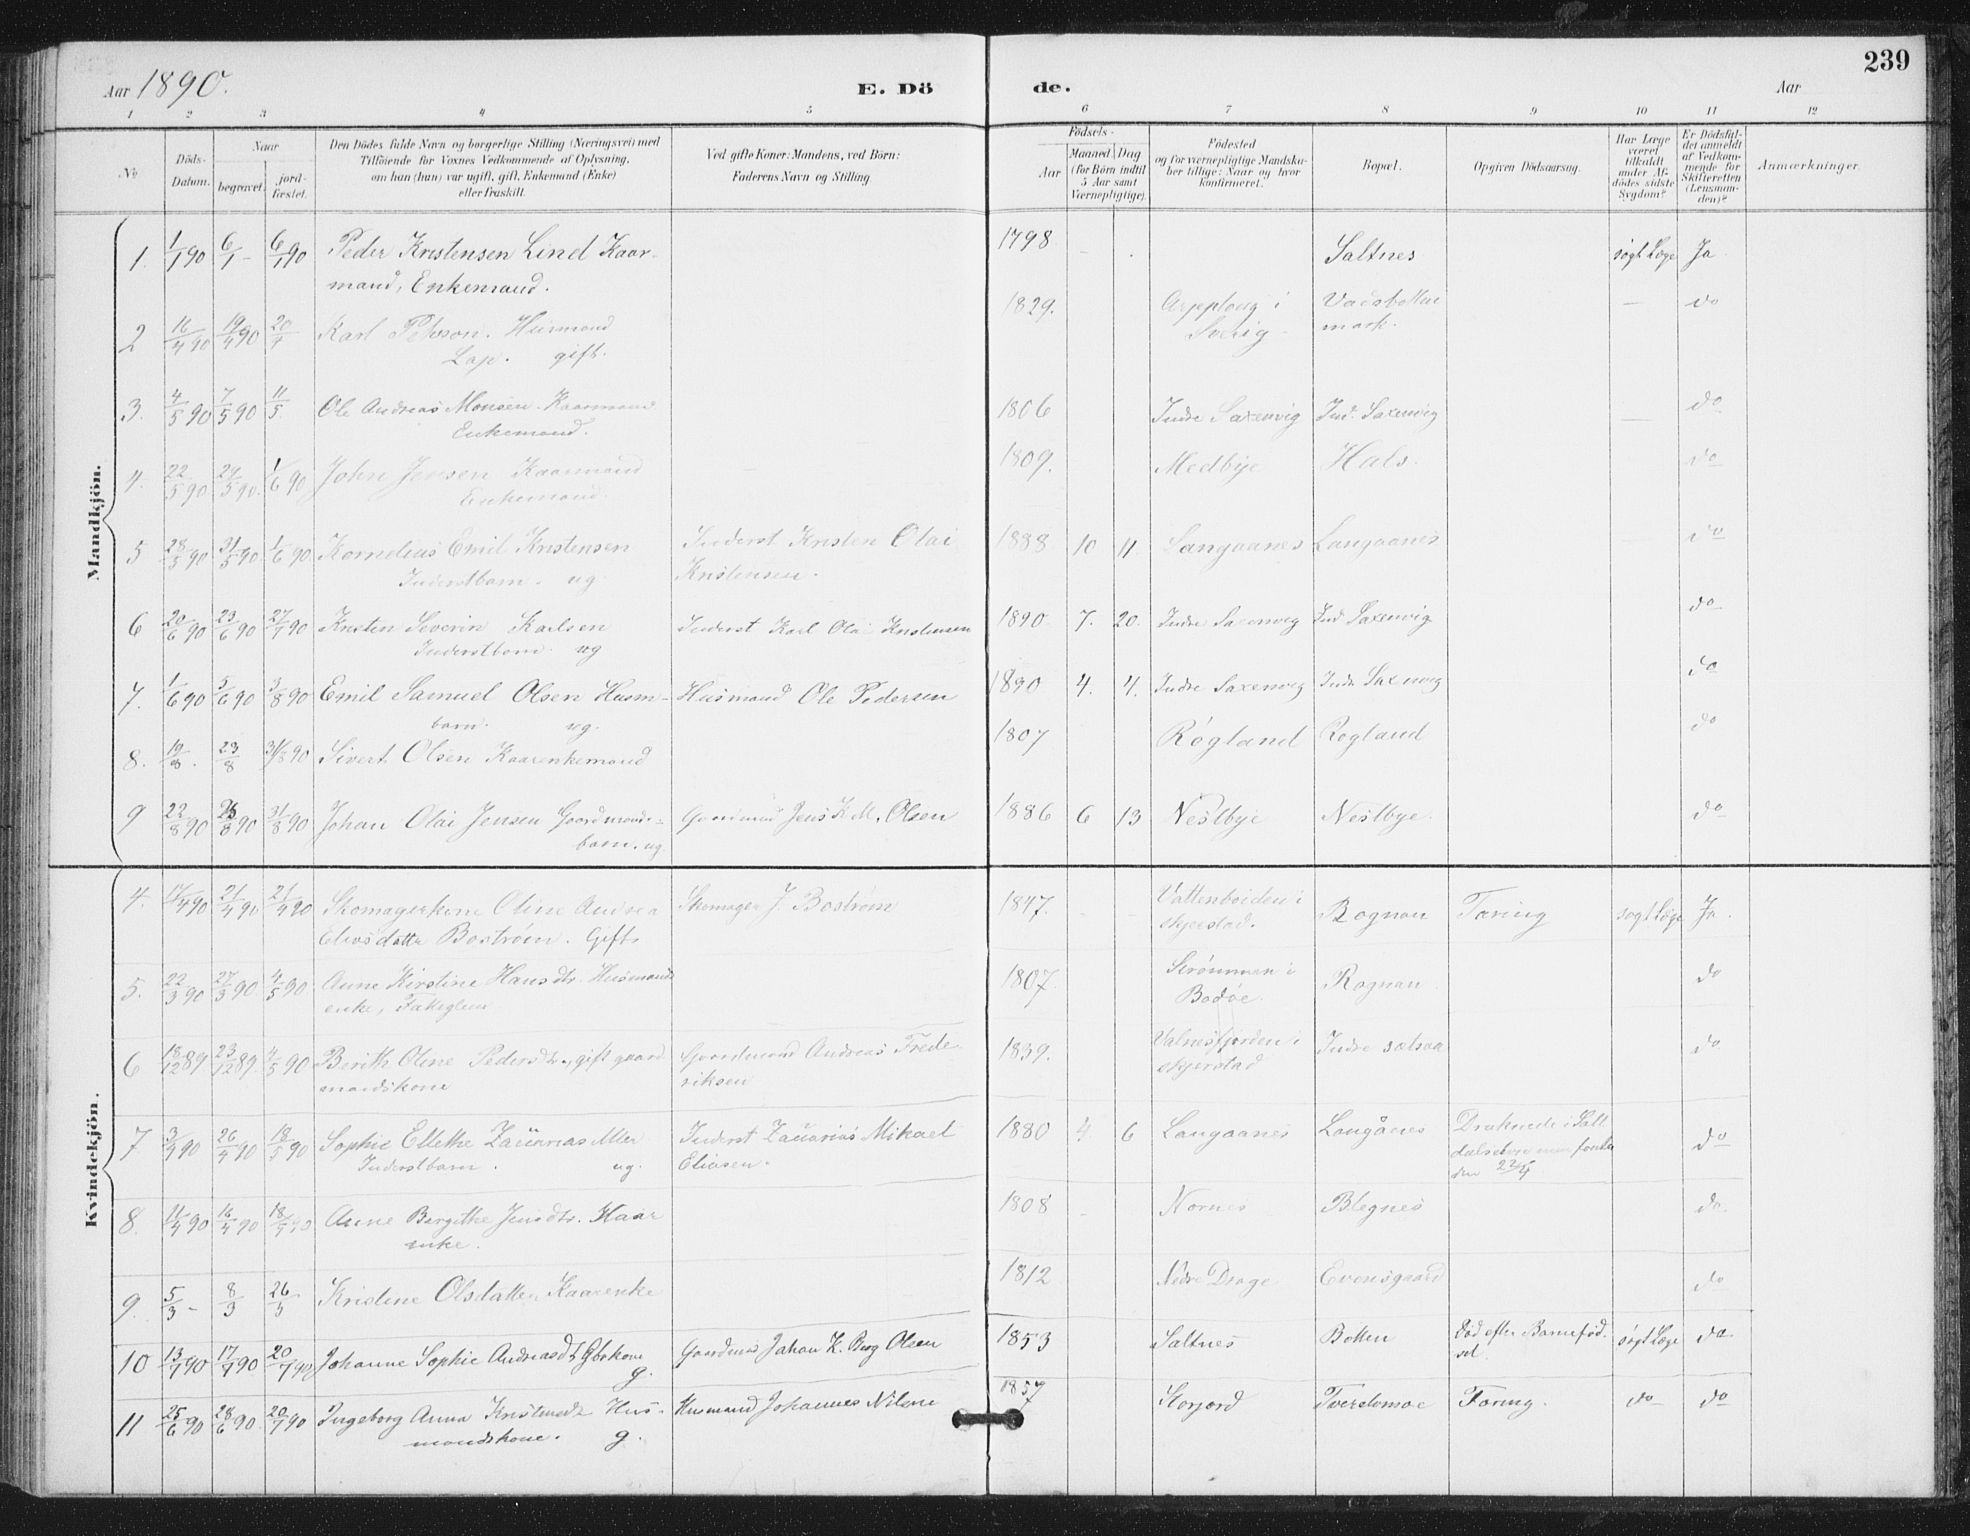 Aar 1890.
E. Dö
de.
Aar
239
1 2 3 4 5 6 7 8 9 10 11 12
No
Döds-
Datum.
Naar
begravet.
jord-
fæstet.
Den Dödes fulde Navn og borgerlige Stilling (Næringsvei) med
Tilföiende for Voxnes Vedkommende af Oplysning,
om han (hun) var ugift, gift, Enkemand (Enke)
eller fraskilt.
Ved gifte Koner: Mandens, ved Börn:
Faderens Navn og Stilling.
Födsels-
Aar
Maaned
Dag
(for Börn indtil
5 Aar samt
Værnepligtige).
Födested
og for værnepligtige Mandska-
ber tillige: Naar og hvor
konfirmeret.
Bopæl.
Opgiven Dödsaarsag.
Har Læge
været
tilkaldt
under Af-
dödes sidste
Sygdom?
Er Dödsfal-
det anmeldt
af Vedkom-
mende for
Skifteretten
(Lensman-
den)?
Anmærkninger.
Mandkjön.
1. 1/1 90 6/1 - 6/1 90 Peder Kristensen Lind Kaar- 1798 - Saltnes søgt Læge Ja.
mand, Enkemand.
2 16/4 90 19/4 90 20/4 Karl Petterson. Husmand 1829. Arjeploug i Vadsbotten — do
Lap. gift. Sverig mark.
3. 4/5 90 7/5 90 11/5 Ole Andreas Monsen Kaarmand 1806 Indre Saxenvig Ind. Saxenvig — do
Enkemand.
4. 22/5 90 27/5 90. 1/6 90 John Jensen Kaarmand 1809. Medbye Hals. do
Enkemand.
5 28/5 90 31/5 90 1/6 90. Kornelius Emil Kristensen Inderst Kristen Olai 1888 10 11. Langaanes Langaanes do
Inderstbarn. ug. Kristensen.
6 20/6 90 23/6 90 27/7 90 Kristen Severin Karlsen Inderst Karl Olai Kristensen 1890 7. 20. Indre Saxenvig Ind Saxenvig do
Inderstbarn. ug
7. 1/6 90 5/6 90 3/8 90 Emil Samuel Olsen Husm- Husmand Ole Pedersen 1890 4. 4. Indre Saxenvig Indr Saxenvig do
barn. ug.
8. 19/8. 23/8 31/8 90 Sivert Olsen Kaarenkemand 1807 Røgland Røgland do
9 22/8 90 26/8 90 31/8 90 Johan Olai Jensen Gaardmands- Gaardmd Jens K. M. Olsen 1886 6 13 Nestbye Nestbye. do
barn. ug.
Kvindekjön.
4. 17/4 90 21/4 90 21/4 90 Skomagerkone Oline Andrea Skomager J. Boström 1847. Vattenbviden i Rognan Tæring søgt Læge Ja.
Eliasdatter Boström. Gift. Skjerstad.
5. 22/3 90 27/3 90. 4/5 90 Anne Kirstine Hansdtr. Husmands 1807. Strömmen i Rognan do
enke, Fattiglem Bodøe.
6 18/12 89 23/12 89. 4/5 90 Berith Oline Pedersdtr., gift gaard Gaardmand Andreas Frede 1839. Valnesfjorden i Indre sætsaa do
mandskone riksen Skjerstad
7 3/4 90 26/4 90 18/5 90 Sophie Ellethe Zacarias Inderst Zacarias Mikael 1880 4. 6 Langaanes Langånes Druknede i Salt do
Inderstbarn. ug. Eliasen. dalselven
den 22/4
8. 11/4 90 16/4 90 18/5 90 Anne Bergithe Jensdtr. Kaar 1808 - Nornes Blegnes do.
enke.
9. 5/3 - 8/3 26/3 Kristine Olsdatter Kaarenke 1812 Nedre Drage Evensgaard do
10 13/7 90 17/7 90 20/7 90 Johanne Sophie Andreasdt. Gbrkone Gaardmd Johan K. Berg Olsen 1853 Saltnes Botten Död efter Barnefød- søgt Læge do.
g. sel.
11 25/6 90 28/6 90. 20/7 90 Ingeborg Anna Kristensdt. Hus- Husmand Johannes Nilsen 1857 Storjord Tverelvmoe Tæring. do do
mandskone. g.